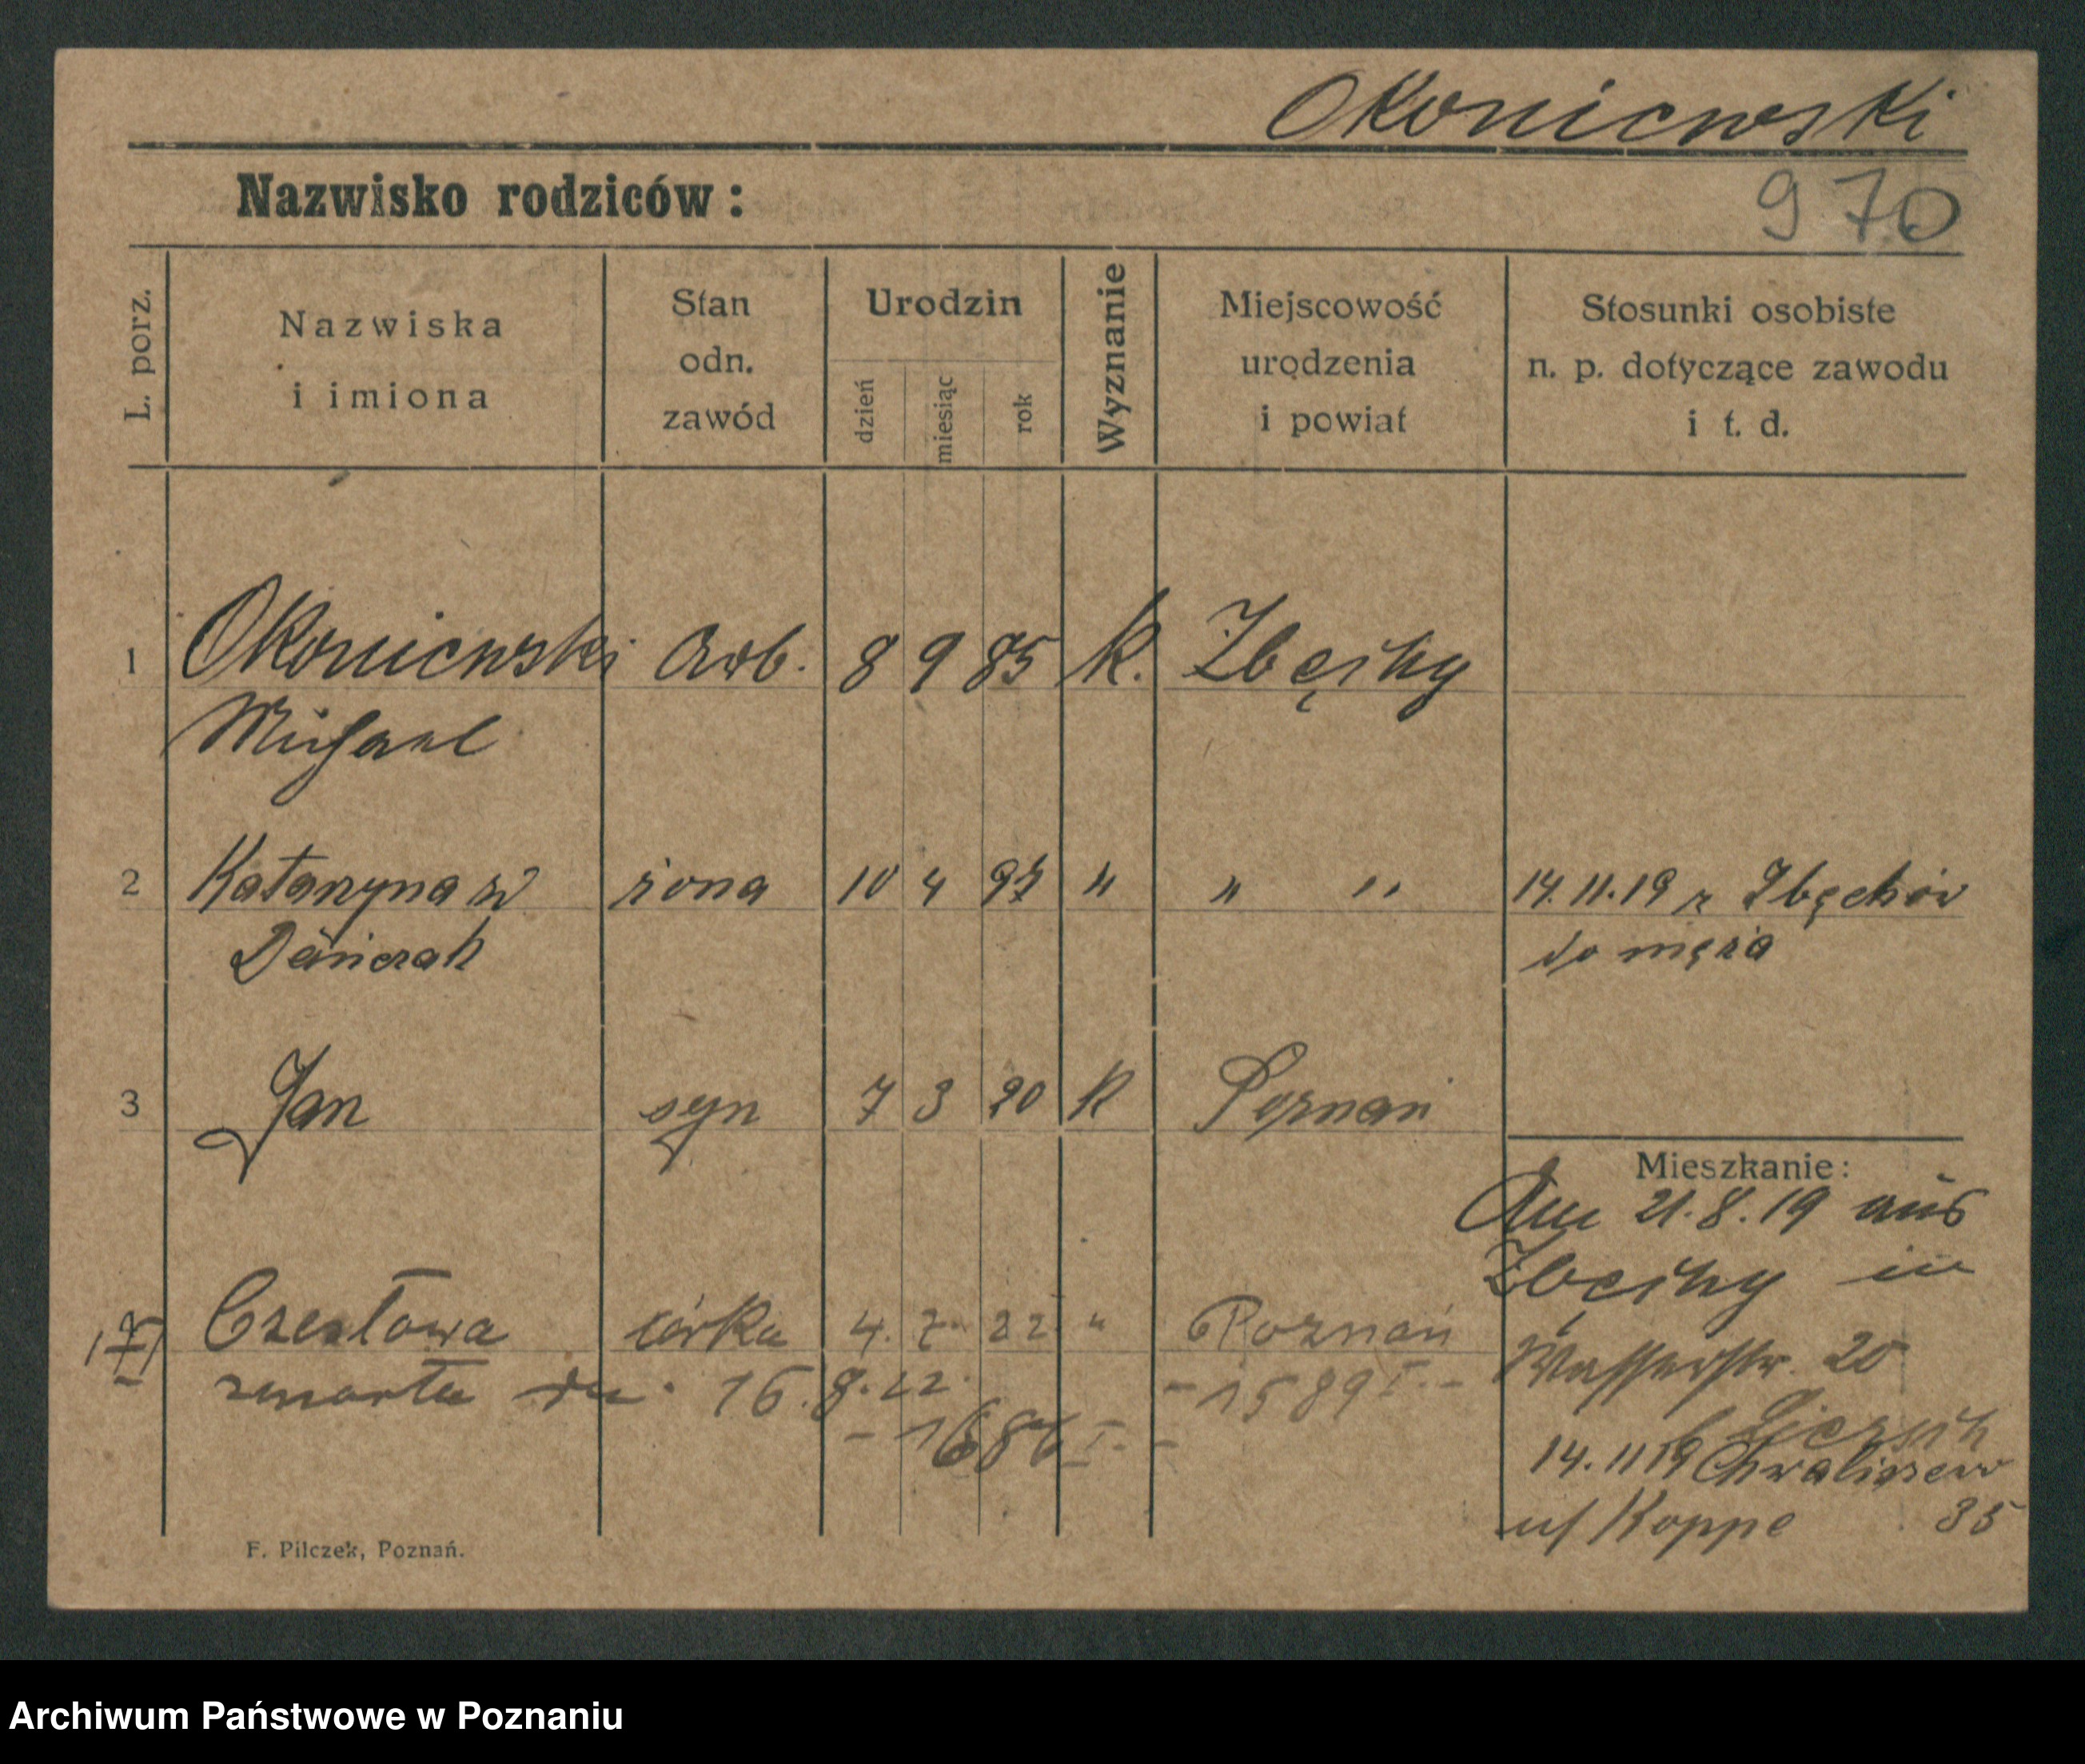 Okoniewski
Nazwisko rodziców:
970
L. porz.
Nazwiska
i imiona
Stan
odn.
zawód
Urodzin
dzień
miesiąc
rok
Wyznanie
Miejscowość
urodzenia
i powiat
Stosunki osobiste
n. p. dotyczące zawodu
i t. d.
1 Okoniewski Arb. 8 9 85 K. Zbęchy
Michael
2 Katarzyna w żona 10 4 97 " " " 14.11.19 z Zbęchów
do męża
3 Jan syn 7 3 20 K Poznań
Mieszkanie:
Am 21.8.19 aus
Zbęchy in
Czesława córka 4. 7. 22 " Poznań
Wasserstr. 20
zmarła dn. 16.8.22. - 1589 I. -
- 1686 I. -
14.11 19 Chwaliszewo
u/ Koppe 35
F. Pilczek, Poznań.
Archiwum Państwowe w Poznaniu